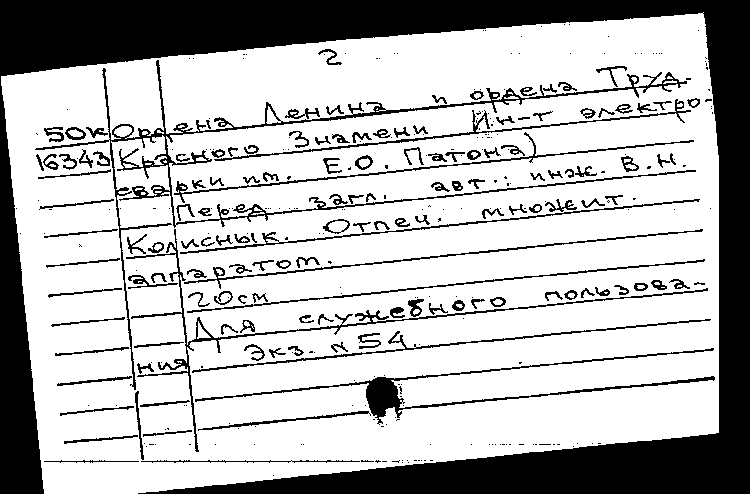 2
50к Ордена Ленина и ордена Труд.
16343 Красного Знамени Ин-т электро-
сварки им. Е.О. Патона)
Перед загл. авт.: инж. В.Н.
Колисных. Отпеч. множит.
аппаратом.
20см
Для служебного пользова-
ния. Экз. N 54.